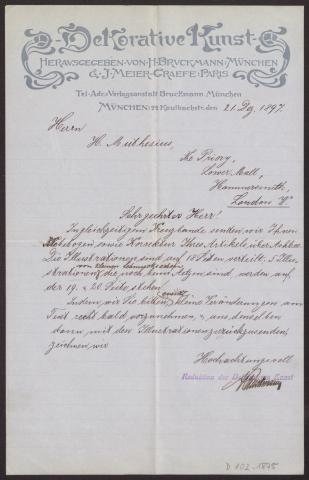 Dekorative Kunst
HERAUSGEGEBEN·VON·H·BRUCKMANN·MÜNCHEN
& J·MEIER-GRAEFE·PARIS
Tel-Adr: Verlagsanstalt Bruckmann München
MÜNCHEN: 22 Kaulbachstr. den 21. Dez. 1897.
Herrn
H. Muthesius,
The Priory,
Lower Mall,
Hammersmith,
London W
Sehr geehrter Herr!
In gleichzeitigem Kreuzbande senden wir Ihnen
sowie Korrektur Ihres Artikels über Ashbee.
Die Illustrationen sind auf 18 Seiten verteilt. 5 Illu-
strationen, die noch werden auf
der 19. u. 20. Seite stehen.
Indem wir Sie bitten, kleine Veränderungen am
Text recht bald vorzunehmen, u. uns denselben
dann mit den Illustrationen zurückzusenden,
zeichnen wir
Hochachtungsvoll
Redaktion der Dekorativen Kunst
D 102-1875